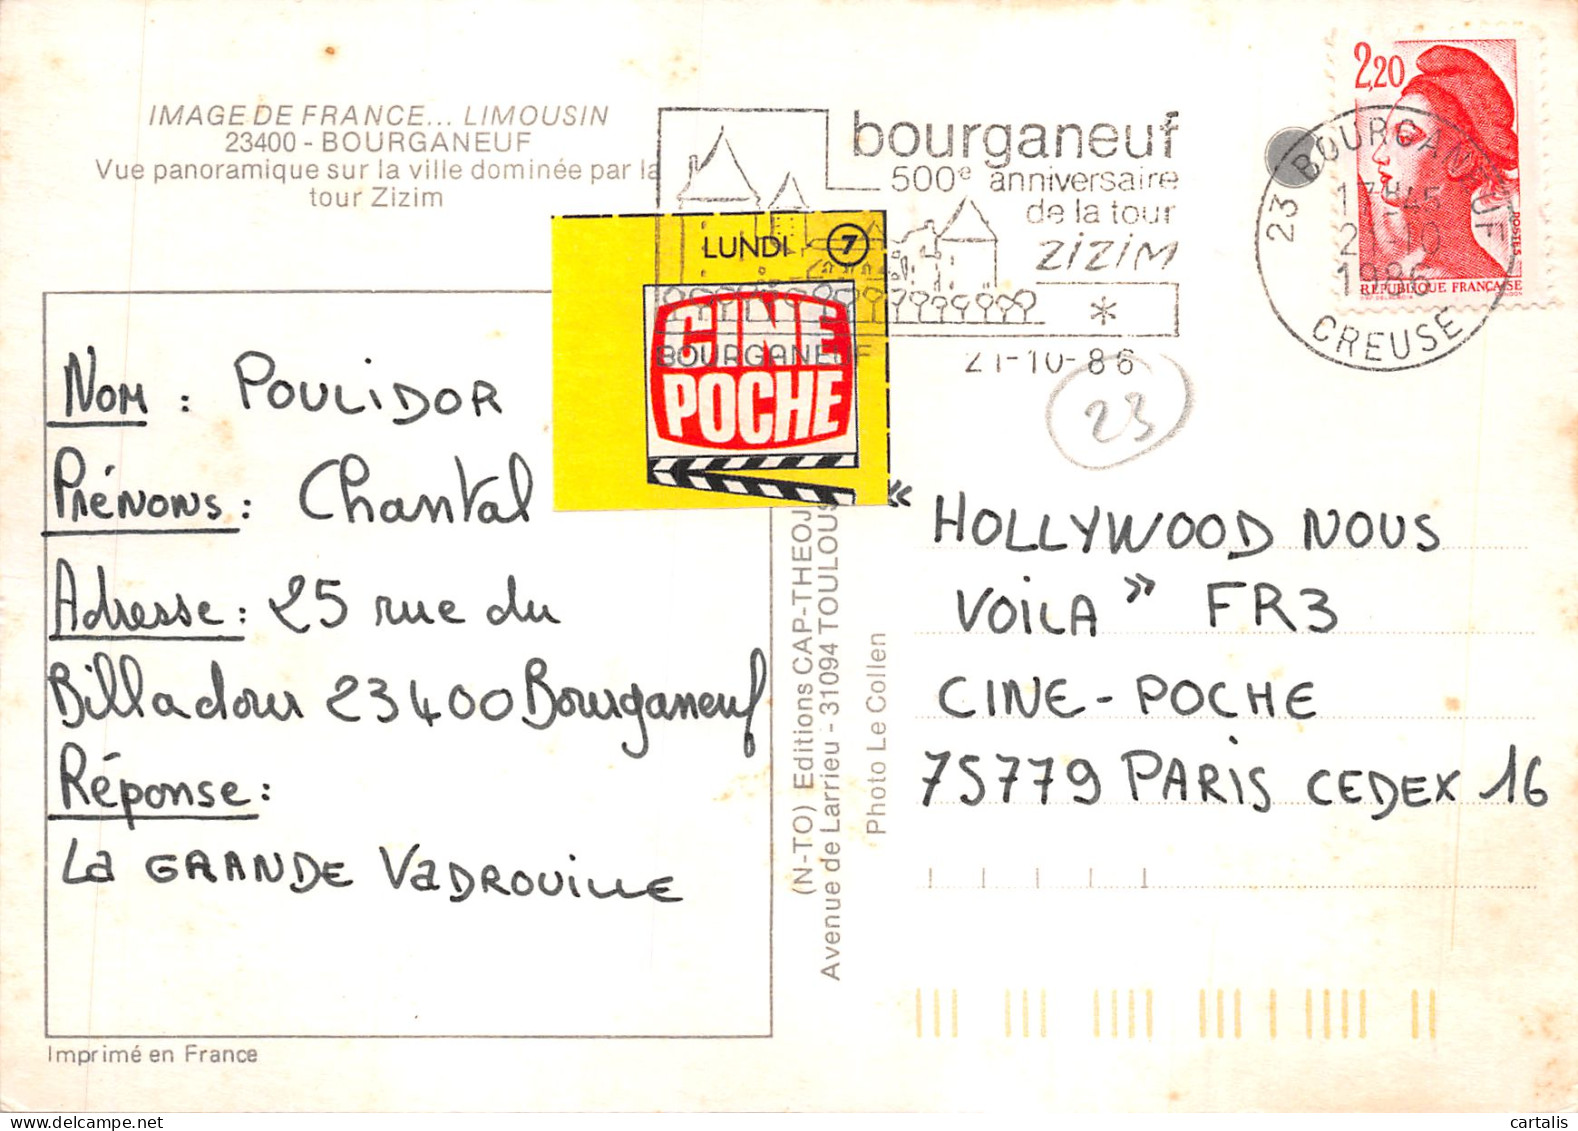 IMAGE DE FRANCE... LIMOUSIN
23400 - BOURGANEUF
Vue panoramique sur la ville dominée par la
tour Zizim
bourganeuf
500e anniversaire
de la tour
ZIZIM
*
BOURGANEUF
21-10-86
23 BOURGANEUF
17H45
21-10
1986
CREUSE
2,20
POSTES
RÉPUBLIQUE FRANÇAISE
LUNDI 7
CINE
POCHE
23
Nom : POULIDOR
Prénoms : Chantal
Adresse : 25 rue du
Billadour 23400 Bourganeuf
Réponse :
La GRANDE VaDROUILLE
(N-TO) Editions CAP-THEOJ
Avenue de Larrieu - 31094 TOULOUS
Photo Le Collen
« HOLLYWOOD NOUS
VOILA » FR3
CINE-POCHE
75779 PARIS CEDEX 16
Imprimé en France
cartalis